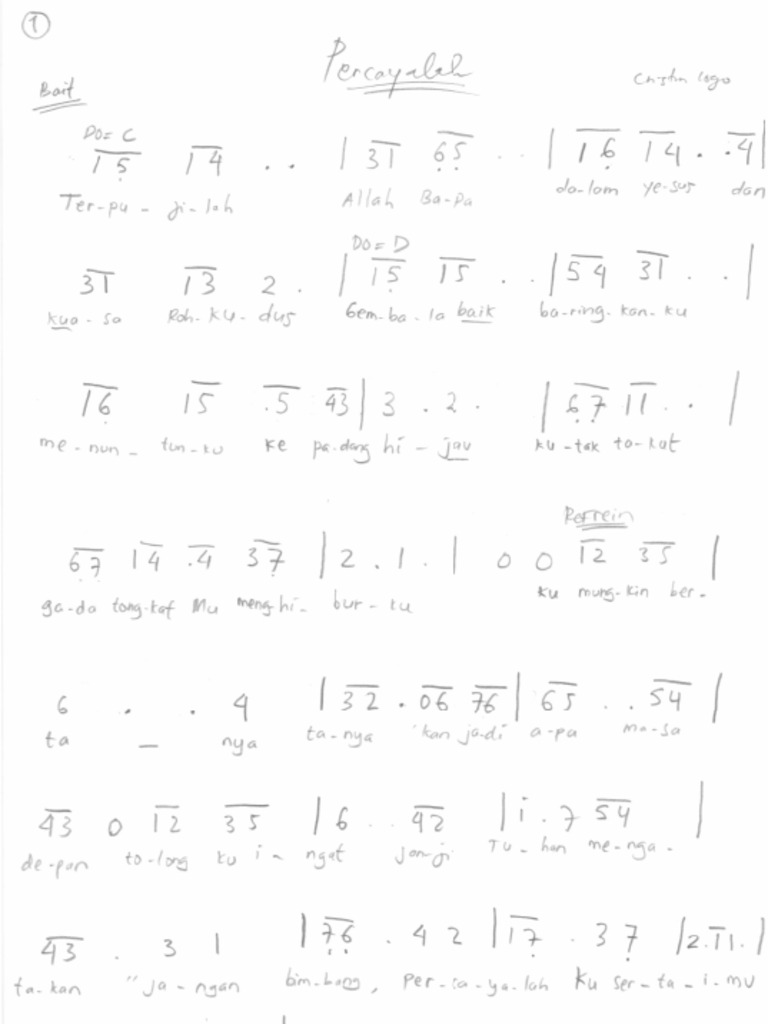 1
Percayalah
Bait
DO= C
15 14 . . | 31 65 . . | 16 14 . .4 |
Ter-pu-ji-lah Allah Ba-pa da-lam ye-sus dan
DO= D
31 13 2 . | 15 15 . . | 54 31 . . |
kua-sa Roh-ku-dus Gem-ba-la baik ba-ring-kan-ku
16 15 .5 43 | 3 . 2 . | 67 11 . . |
me-nun-tun-ku ke pa-dang hi-jau ku-tak ta-kut
Refrein
67 14 .4 37 | 2 . 1 . | 0 0 12 35 |
ga-da tong-kat Mu meng-hi-bur-ku ku mung-kin ber-
6 . . 4 | 32 . 06 76 | 65 . . 54 |
ta - nya ta-nya 'kan ja-di a-pa ma-sa
43 0 12 35 | 6 . . 42 | i . 7 54 |
de-pan to-long ku i-ngat jan-ji Tu-han me-nga-
43 . 3 1 | 76 . 4 2 | 17 . 37 | 2.11. |
ta-kan "ja-ngan bim-bang, per-ca-ya-lah ku ser-ta-i-mu